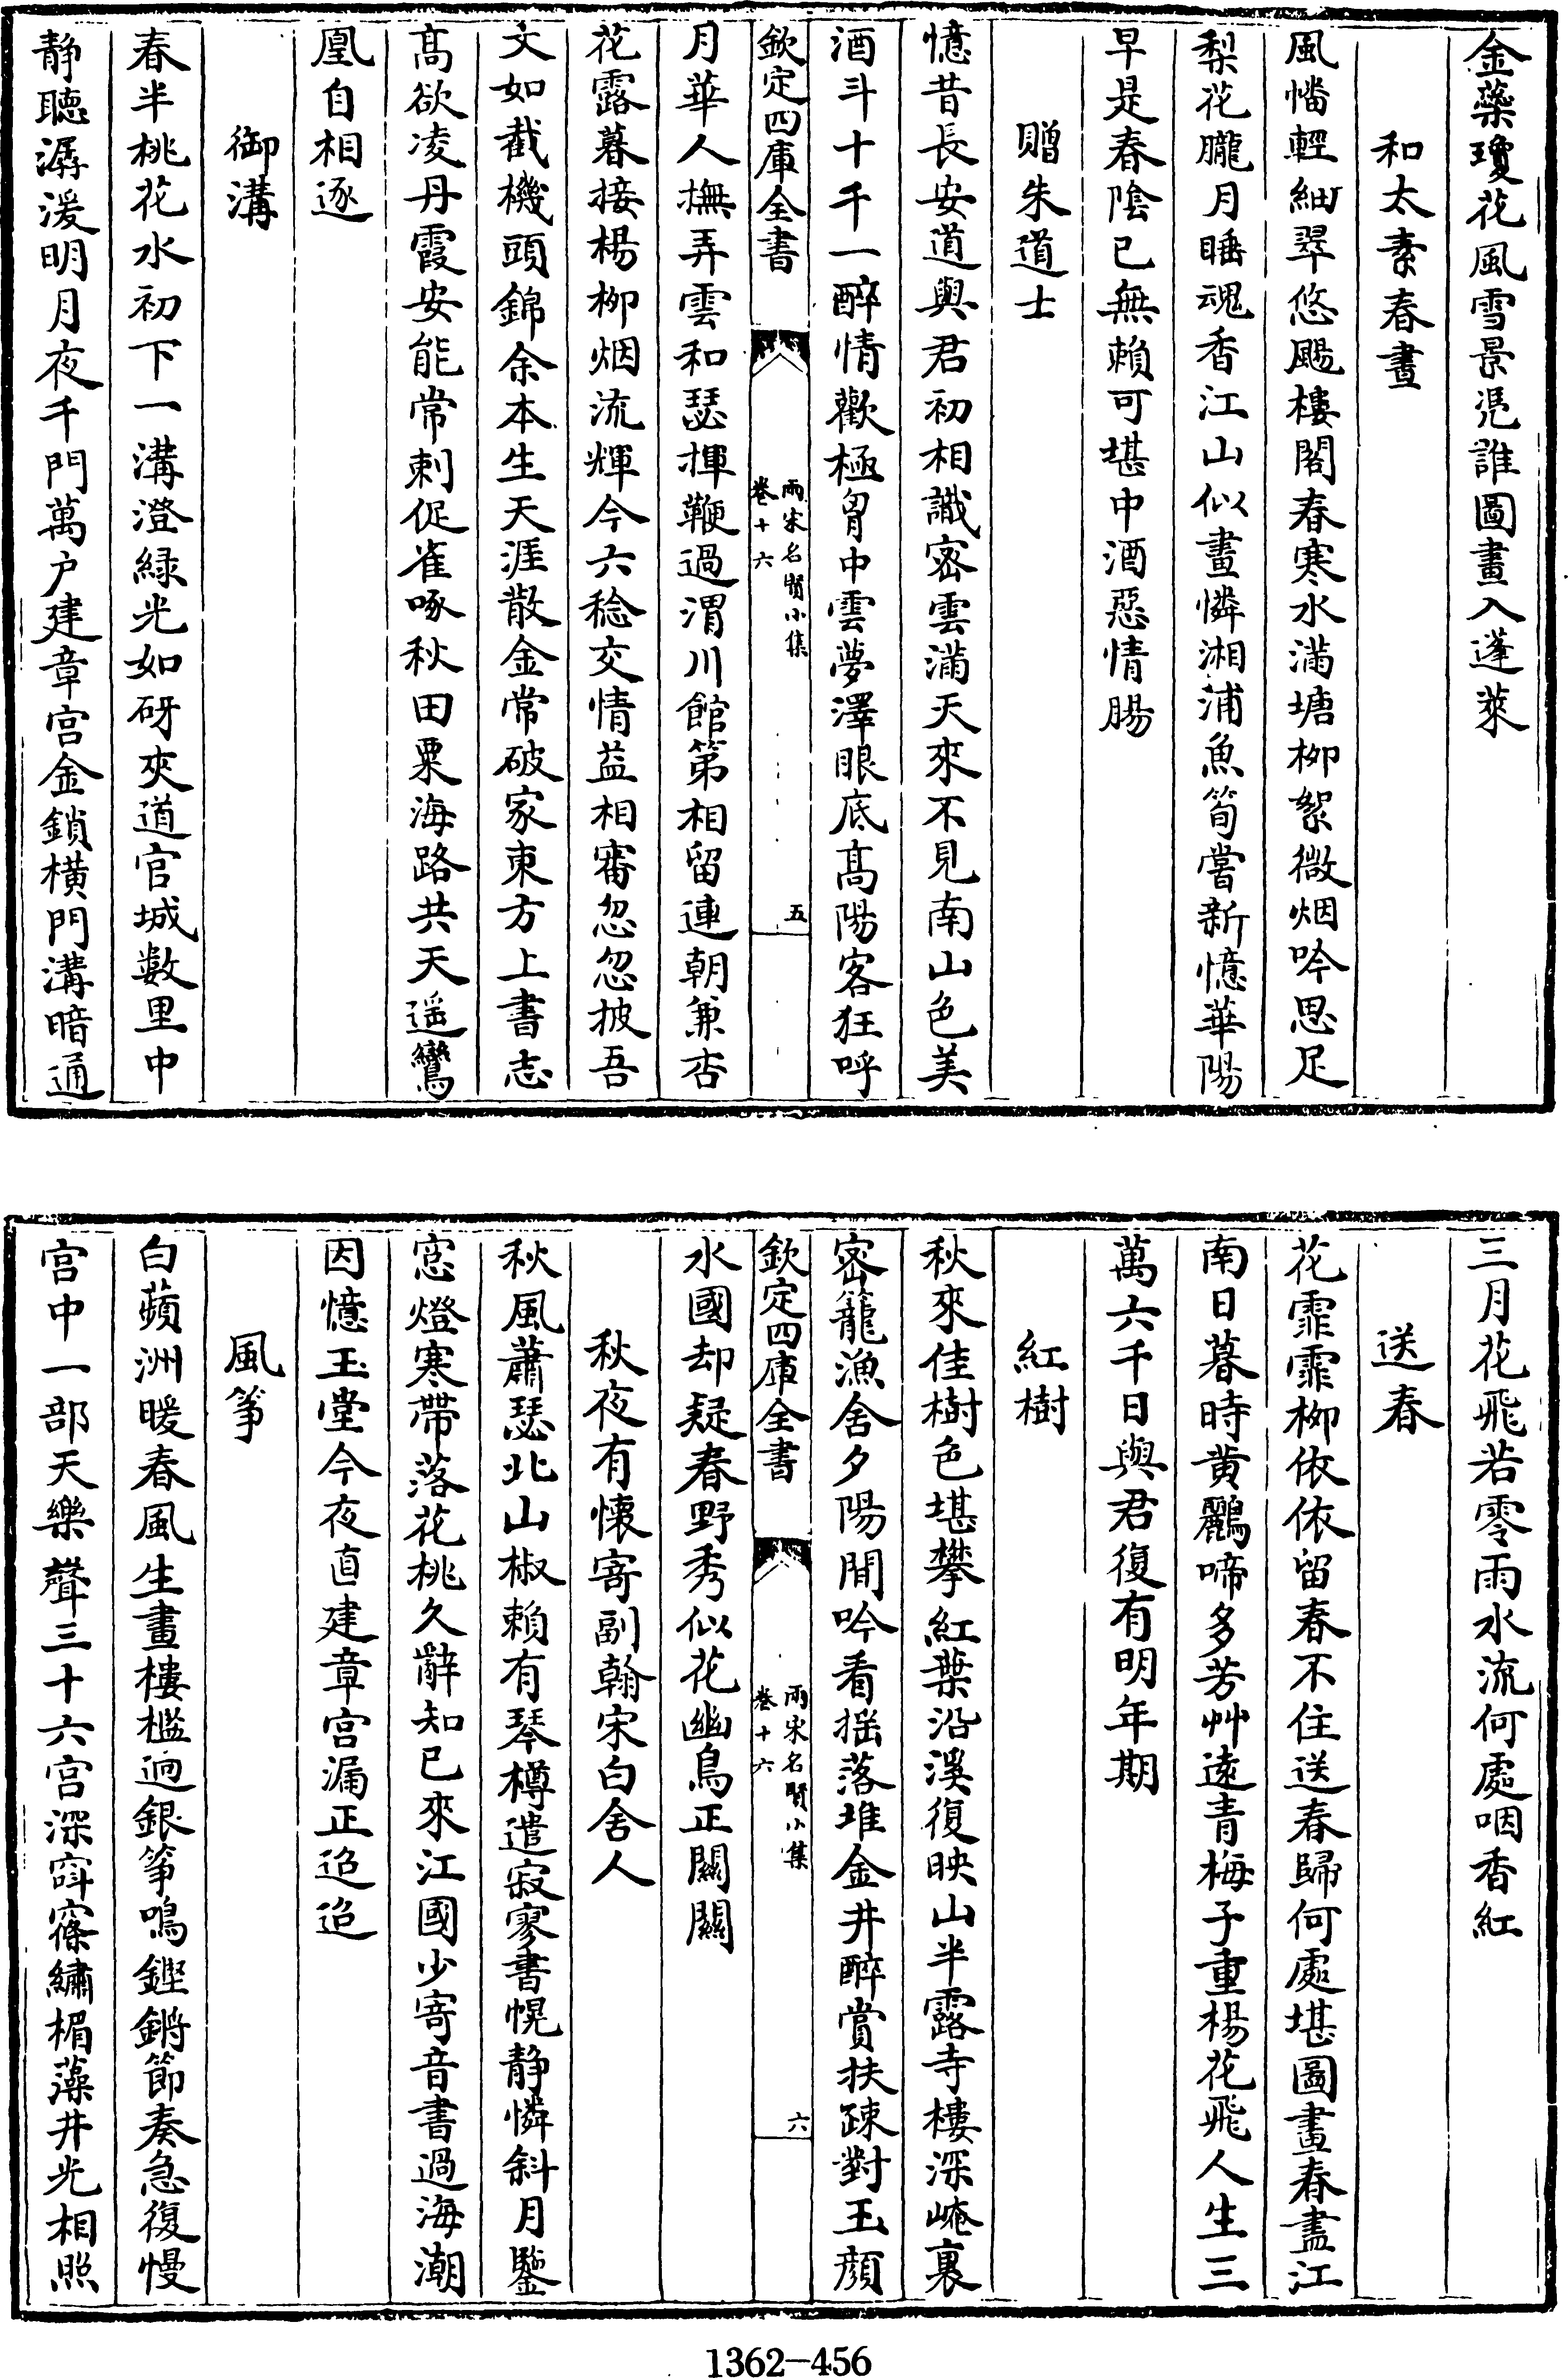 金蘂瓊花風雪景凴誰圖畫入蓬萊
和太素春晝
風幡輕細翠悠颺樓閣春寒水滿塘栁絮微烟吟思足
梨花朧月睡魂香江山似畫憐湘浦魚筍嘗新憶華陽
早是春陰已無賴可堪中酒惡情腸
贈朱道士
憶昔長安道與君初相識密雲滿天來不見南山色美
酒斗十千一醉情歡極胷中雲夢澤眼底髙陽客狂呼
欽定四庫全書
兩宋名賢小集
卷十六
五
月華人撫弄雲和瑟揮鞭過渭川館第相留連朝兼杏
花露暮接楊栁烟流輝今六稔交情益相審忽忽披吾
文如截機頭錦余本生天涯散金常破家東方上書志
髙欲凌丹霞安能常刺促雀啄秋田粟海路共天遥鸞
凰自相逐
御溝
春半桃花水初下一溝澄緑光如砑夾道官城數里中
静聽潺湲明月夜千門萬户建章宫金鎖横門溝暗通
三月花飛若零雨水流何處咽香紅
送春
花霏霏栁依依留春不住送春歸何處堪圖畫春盡江
南日暮時黄鸝啼多芳艸遠青梅子重楊花飛人生三
萬六千日與君復有明年期
紅樹
秋來佳樹色堪攀紅葉沿溪復映山半露寺樓深崦裏
密籠漁舍夕陽間吟看摇落堆金井醉賞扶疎對玉顔
欽定四庫全書
兩宋名賢小集
卷十六
六
水國却疑春野秀似花幽鳥正關關
秋夜有懐寄副翰宋白舍人
秋風蕭瑟北山椒賴有琴樽遣寂寥書幌静憐斜月鑒
窓燈寒帶落花桃久辭知已來江國少寄音書過海潮
因憶玉堂今夜直建章宫漏正迢迢
風筝
白蘋洲暖春風生畫樓檻逈銀筝鳴鏗鏘節奏急復慢
宫中一部天樂聲三十六宫深窱窱繡楣藻井光相照
1362-456